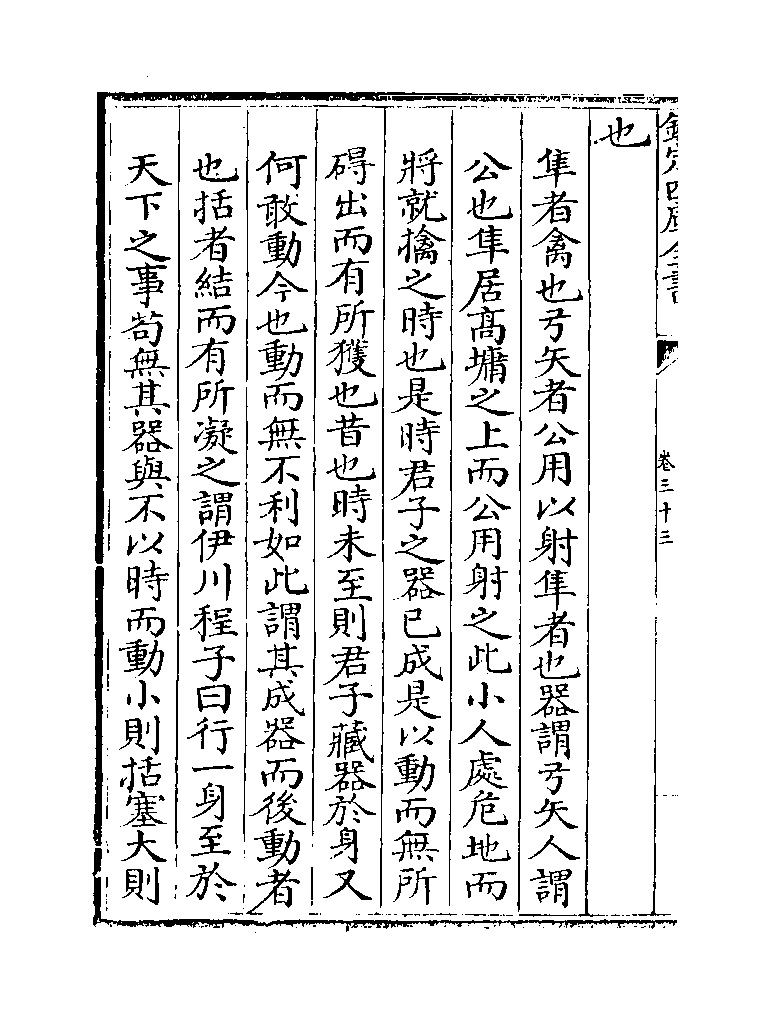 欽定四庫全書
卷三十三
也
隼者禽也弓矢者公用以射隼者也器謂弓矢人謂
公也隼居髙墉之上而公用射之此小人處危地而
將就擒之時也是時君子之器已成是以動而無所
礙出而有所獲也昔也時未至則君子藏器於身又
何敢動今也動而無不利如此謂其成器而後動者
也括者結而有所凝之謂伊川程子曰行一身至於
天下之事茍無其器與不以時而動小則括塞大則